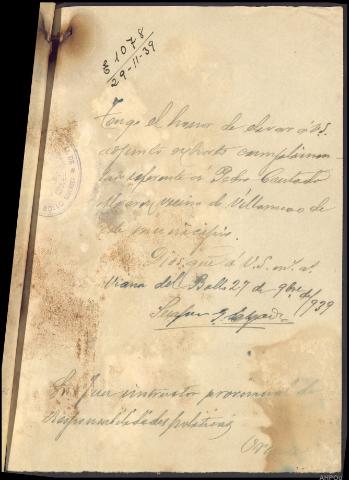 E 1078
29-11-39
Tengo el honor de elevar á V.S.
adjunto exhorto cumplimen-
tar referente a Pedro Centado
vecino de Villanueva de
este municipio.
Dios gue á V.S. m. a.
Viana del Bollo 27 de 9bre de 1939
Sr. Juez instructor provincial de
responsabilidades políticas
AHPOU